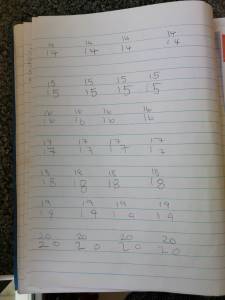 14 14 14 14
14 14 14 14
15 15 15 15
15 15 15 15
16 16 16 16
16 16 16 16
17 17 17 17
17 17 17 17
18 18 18 18
18 18 18 18
19 19 19 19
19 19 19 19
20 20 20 20
20 20 20 20